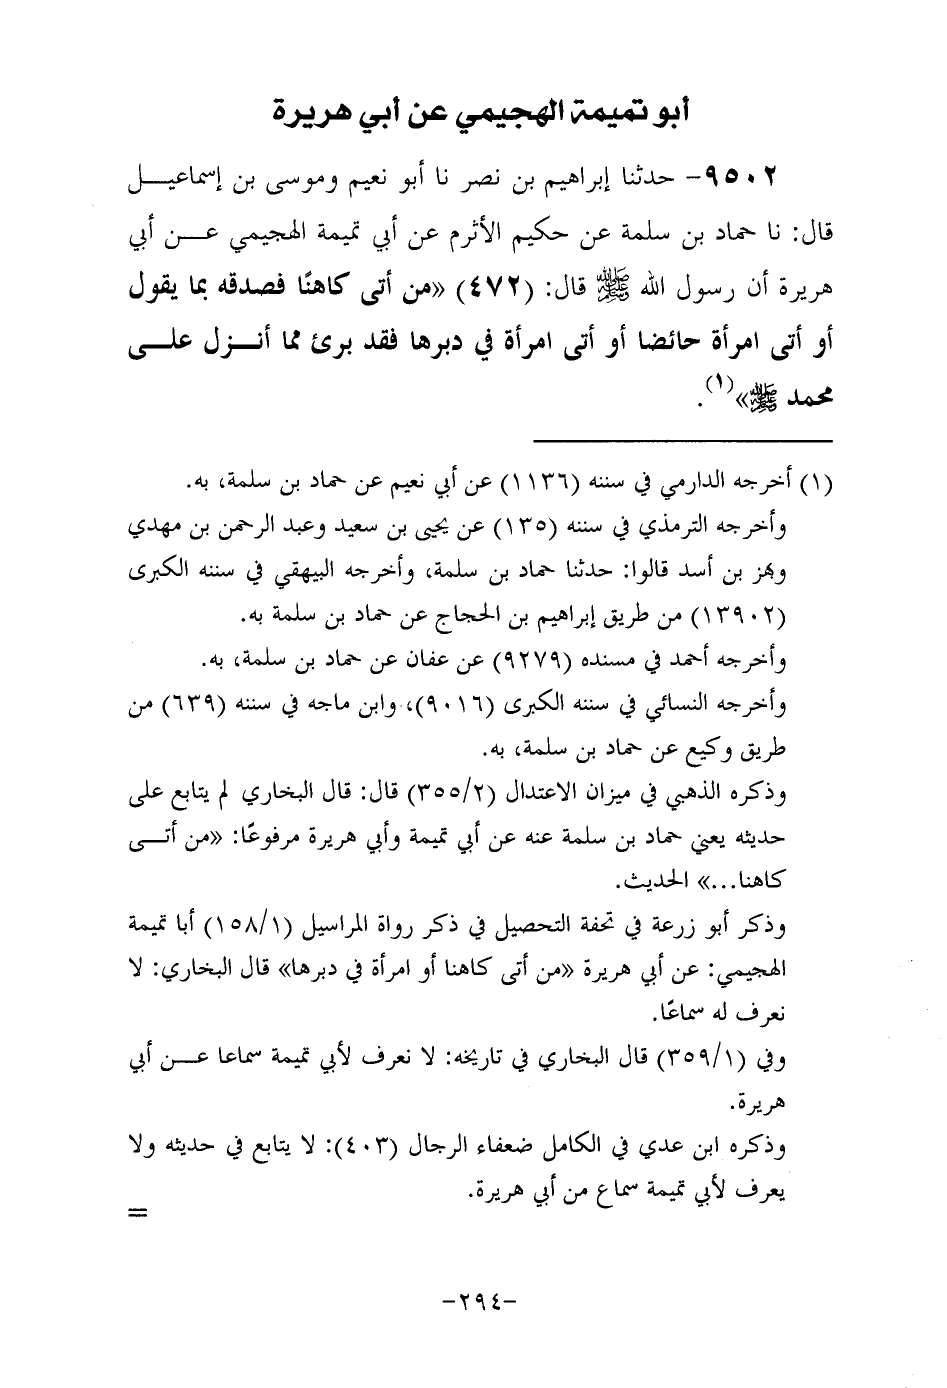 أبو تميمة الهجيمي عن أبي هريرة
٩٥٠٢- حدثنا إبراهيم بن نصر نا أبو نعيم وموسى بن إسماعيـــل
قال: نا حماد بن سلمة عن حكيم الأثرم عن أبي تميمة الهجيمي عـــن أبي
هريرة أن رسول الله ﷺ قال: (٤٧٢) «من أتى كاهنًا فصدقه بما يقول
أو أتى امرأة حائضا أو أتى امرأة في دبرها فقد برئ مما أنـــزل علـــى
محمد ﷺ»(١).
(١) أخرجه الدارمي في سننه (١١٣٦) عن أبي نعيم عن حماد بن سلمة، به.
وأخرجه الترمذي في سننه (١٣٥) عن يحيى بن سعيد وعبد الرحمن بن مهدي
وبهز بن أسد قالوا: حدثنا حماد بن سلمة، وأخرجه البيهقي في سننه الكبرى
(١٣٩٠٢) من طريق إبراهيم بن الحجاج عن حماد بن سلمة به.
وأخرجه أحمد في مسنده (٩٢٧٩) عن عفان عن حماد بن سلمة، به.
وأخرجه النسائي في سننه الكبرى (٩٠١٦)، وابن ماجه في سننه (٦٣٩) من
طريق وكيع عن حماد بن سلمة، به.
وذكره الذهبي في ميزان الاعتدال (٣٥٥/٢) قال: قال البخاري لم يتابع على
حديثه يعني حماد بن سلمة عنه عن أبي تميمة وأبي هريرة مرفوعًا: «من أتـــى
كاهنا...» الحديث.
وذكر أبو زرعة في تحفة التحصيل في ذكر رواة المراسيل (١٥٨/١) أبا تميمة
الهجيمي: عن أبي هريرة «من أتى كاهنا أو امرأة في دبرها» قال البخاري: لا
نعرف له سماعًا.
وفي (٣٥٩/١) قال البخاري في تاريخه: لا نعرف لأبي تميمة سماعا عـــن أبي
هريرة.
وذكره ابن عدي في الكامل ضعفاء الرجال (٤٠٣): لا يتابع في حديثه ولا
يعرف لأبي تميمة سماع من أبي هريرة.
=
-٢٩٤-